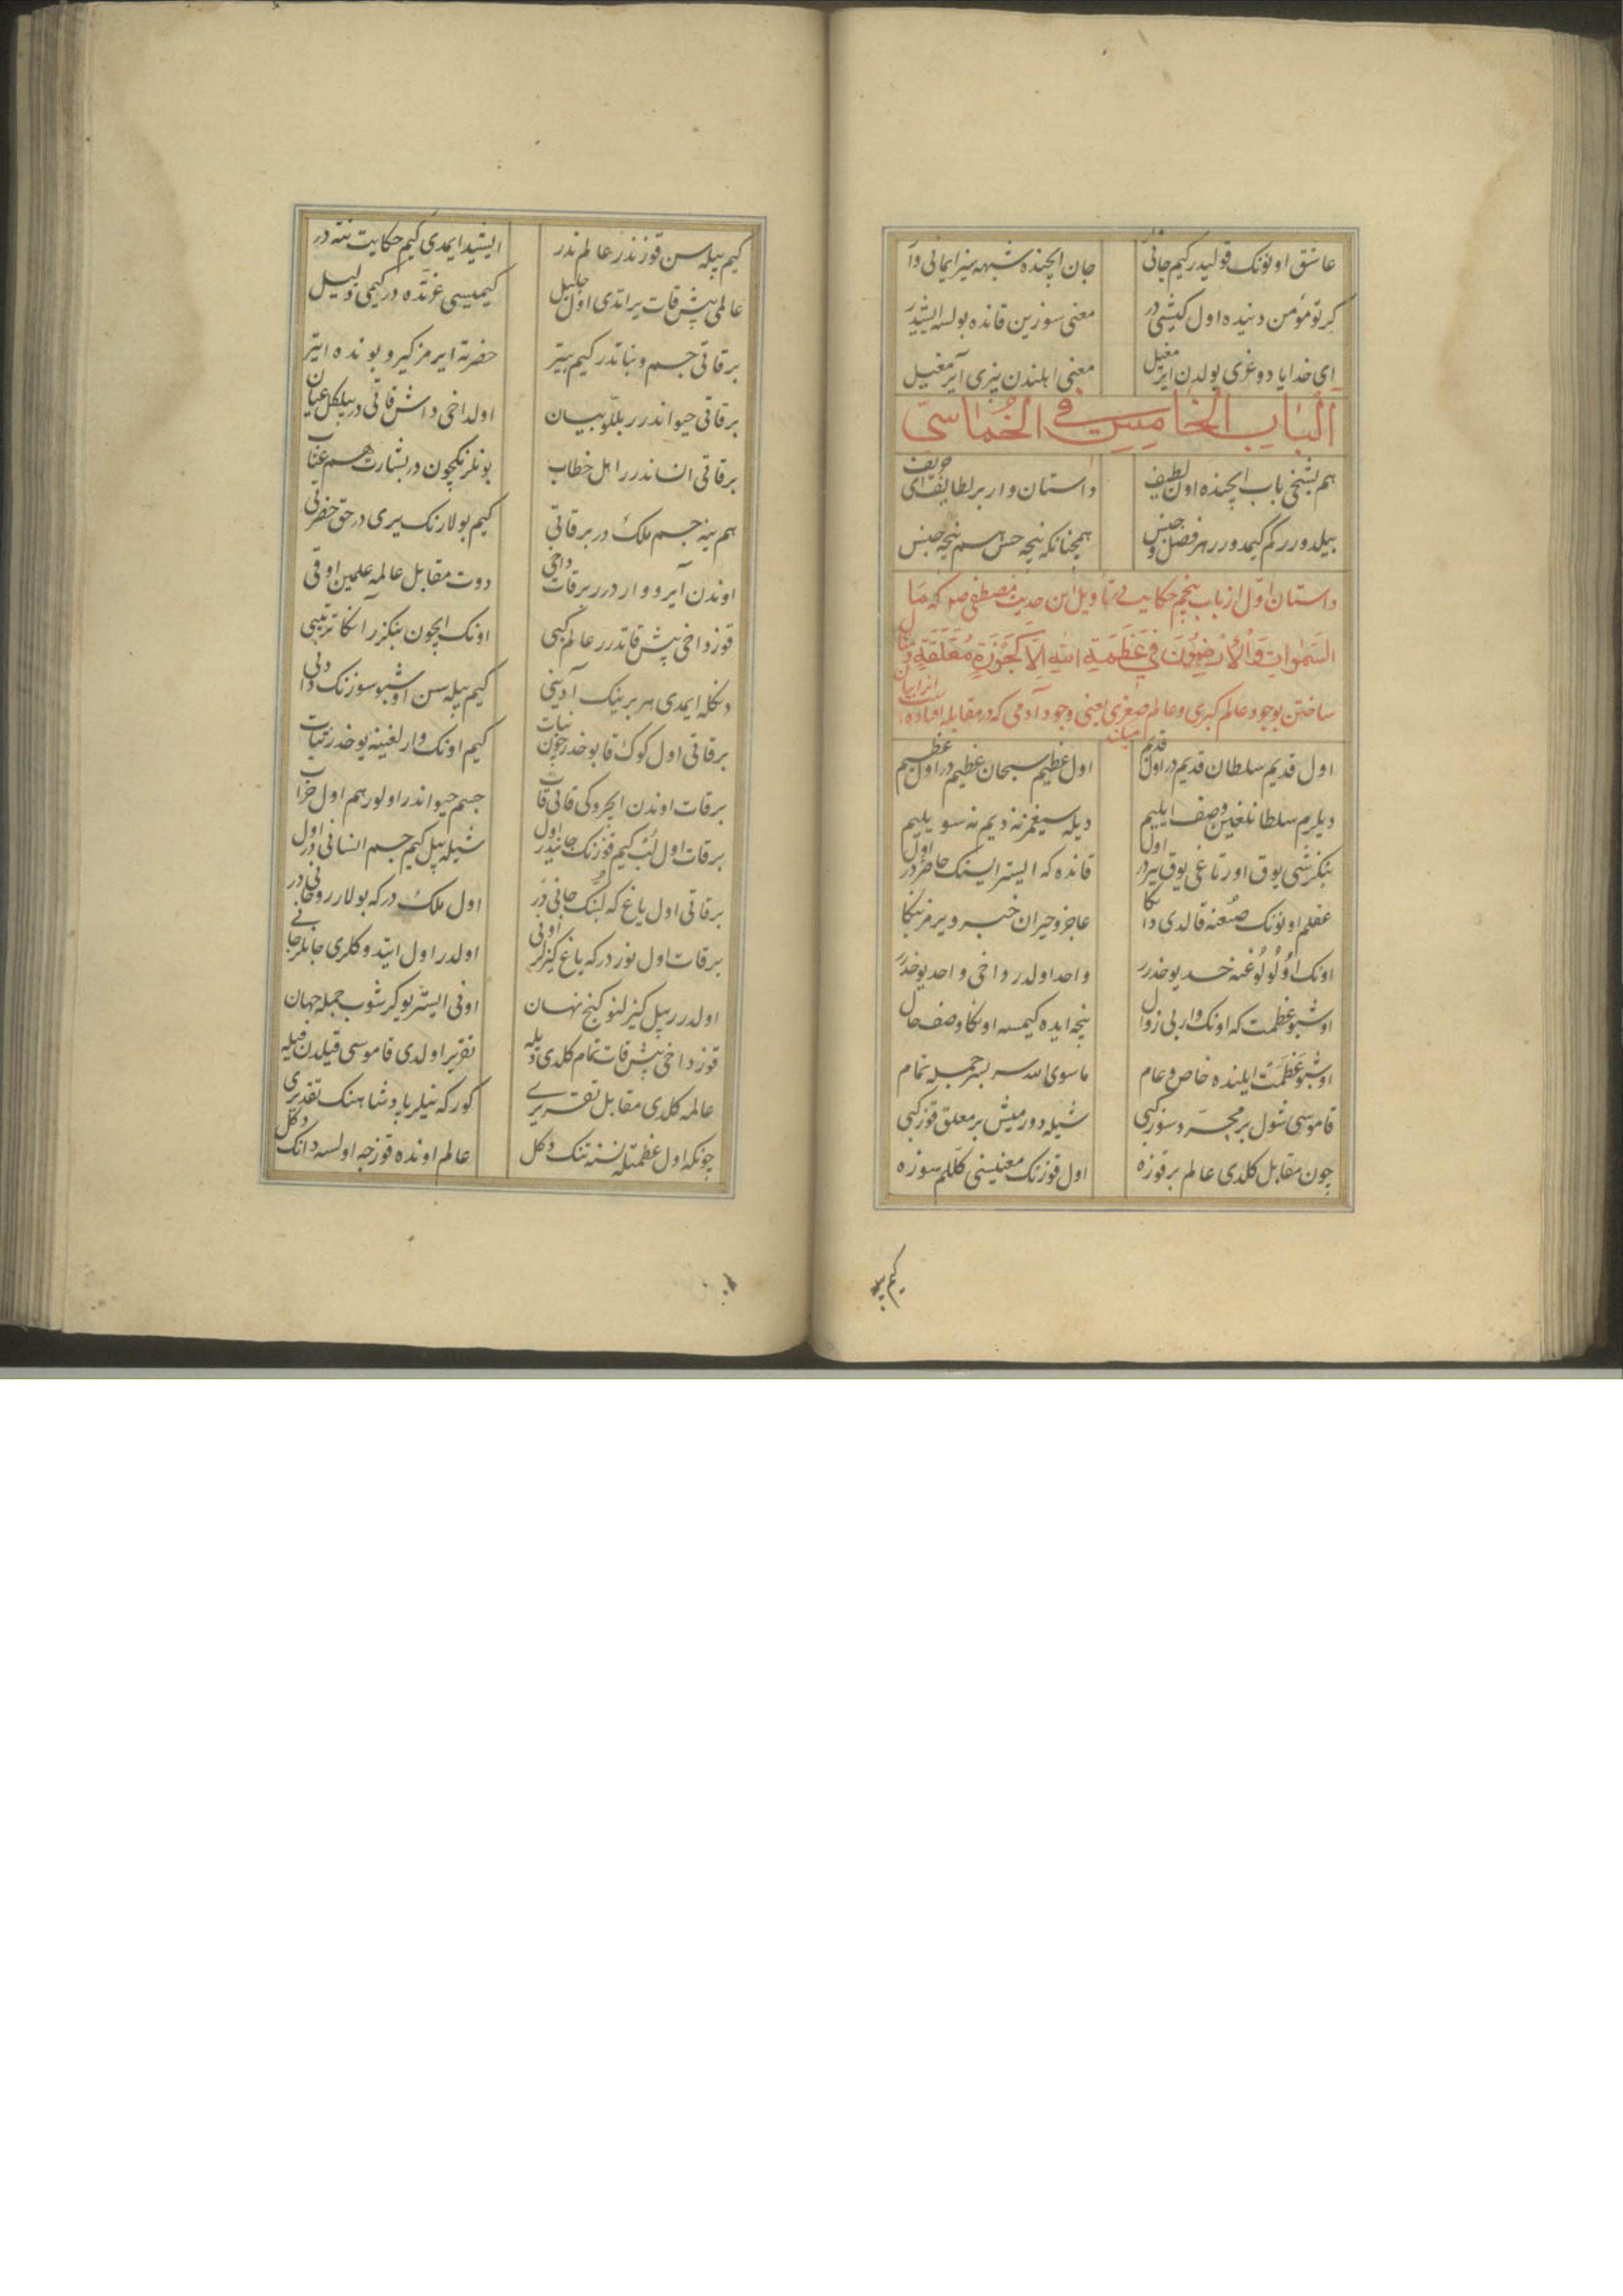 عاشق اونونک قولیدر کیم جانی جان ایچنده شبهه سیز ایمانی وار
کرتو مؤمن دنیده اول کیشی در معنی سوزین قانده بولسه ایشیدر
ای خدایا دوغری یولدن ایرمغیل معنی اهلندن بیزی آیرمغیل
الباب الخامس فی الخماسی
هم بشنجی باب ایچنده اون لطیف داستان وار بر لطایف ای حریف
بیلدورر کم کیمدورر هر فصل و جنس همچنانکه نیجه حس هم نیجه جنس
داستان اول از باب پنجم حکایت در تأویل این حدیث مصطفی صم که مثل
السموات و الارضون فی عظمة الله الا کجوزة معلقة
ساختن بوجود عالم کبری و عالم صغری یعنی وجود آدمی که در مقابله افتاده
اول قدیم سلطان قدیم در اول قدیم اول عظیم سبحان عظیم در اول عظیم
دیلرم سلطانلغین وصف ایلییم دیله سیغمز نه دیم نه سویلییم
بنکزشی یوق اورتاغی یوق بیردر اول قانده که ایسترایسنک حاضردر اول
عقلم اونونک صنعنه قالدی دانکا عاجز و حیران خبر ویرمز بنکا
اونک اولولوغنه حد یوخدرر واحد اولدر داخی واحد یوخدرر
اوشبو عظمت که اونک وار بی زوال نیجه ایده کیمسه اونکا وصف حال
اوشبو عظمت ایلنده خاص و عام ماسوی الله سربسر جمله تمام
قاموسی شول بر مجرد سوز کبی شیله دورمیش بر معلق قوز کبی
چون مقابل کلدی عالم بر قوزه اول قوزنک معنیسنی کللم سوزه
کیم بیله
کیم بیله سن قوز ندر عالم ندر ایشید ایمدی کیم حکایت ننه در
عالمی بش قات یراتدی اول جلیل کیمیسی عزتده در کیمی ذلیل
بر قاتی جسم و نباتدر کیم بیتر حضرته ایرمز کیرو بونده ایتر
بر قاتی حیواندرر بللو بیان اولداخی داش قاتی در بیلکل عیان
بر قاتی انساندرر اهل خطاب بونلرنکچون در بشارت هم عتاب
هم ینه جسم ملک در بر قاتی کیم بولارنک یری در حق حضرتی
اوندن آیرو وار درر بر قات داخی دوت مقابل عالمه علمین اوقی
قوز داخی بش قاتدرر عالم کبی اونک ایچون بنکزر آنکا ترتیبی
دنکله ایمدی هر برینک آدینی کیم بیله سن اوشبو سوزنک دادینی
بر قاتی اول کوک قابوخدر چون نبات کیم اونک وارلغینه یوخدر ثبات
بر قات اوندن ایچروکی قاتی قاب جسم حیواندر اولور هم اول خراب
بر قات اول لب کیم قوزنک جانیدر اول شیله بیل کیم جسم انسانی در اول
بر قاتی اول یاغ که لبنک جانی در اول ملک در که بولار روحانی در
بر قات اول نور در که یاغ کیزلر اونی اولدر اول ایتدوکلری جانلر جانی
اولدرر بیل کیزلنو کنج نهان اونی ایستر یوکرشوب جمله جهان
قوز داخی بش قات تمام کلدی دیله تقریر اولدی قاموسی قیلدن قیله
عالمه کلدی مقابل تقریری کور که نیلر پادشاهنک تقدیری
چونکه اول عظمتله نسنه تنک دکل عالم اونده قوزجه اولسه دانک دکل